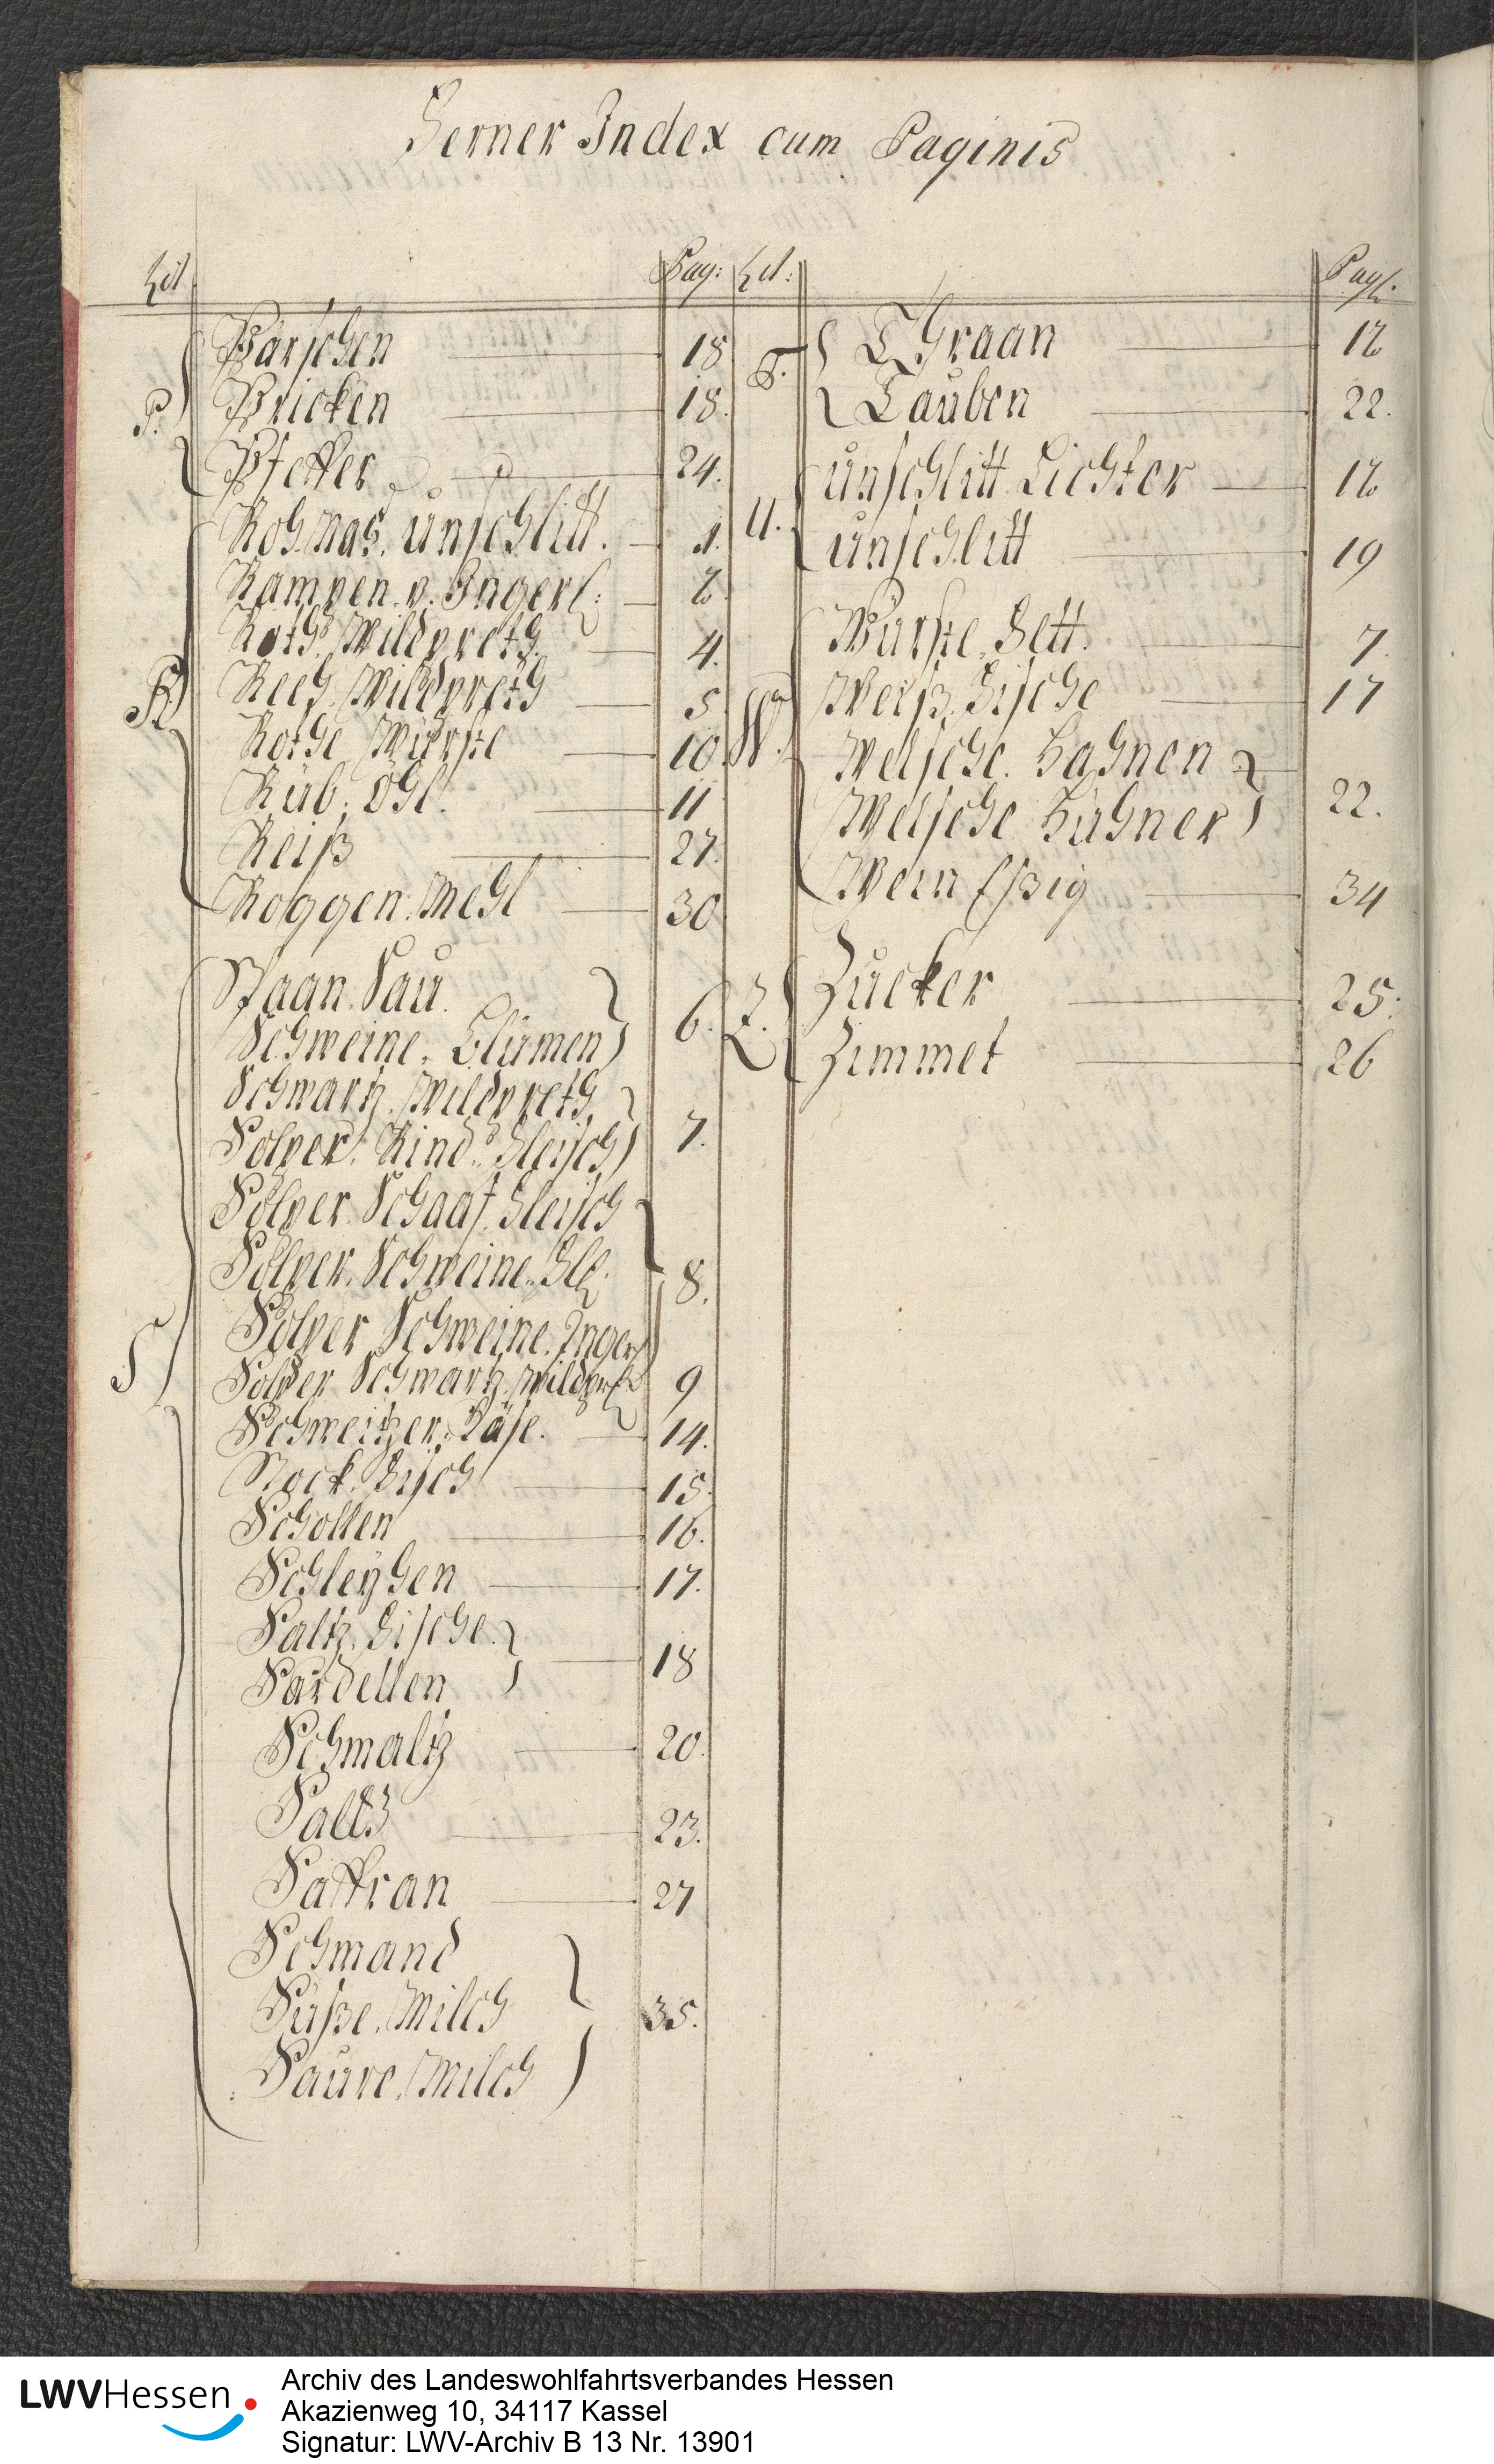 Ferner Index cum Paginis
Lit. Pag: Lit: Pag.
P. Bärschen 18
Bricken 18.
Pfeffer 24.
R. Roh Mas, Unschlitt. 1.
Rampen v. Inger: 2.
Roth Wildpreth 4.
Reeh Wildpreth 5
Rothe Würste 10.
Rüb. Öhl. 11
Reiß 27.
Roggen Mehl 30
S Spaan Sau.
Schweine Blumen 6.
Schwartz Wildpreth
Solper Rind Fleisch 7.
Solper Schaaf Fleisch
Solper Schweine Fl.
Solper Schweine Inger 8.
Solper Schwartz Wildpr. 9
Schweitzer Käse. 14.
Stock Fisch 15.
Schollen 16.
Schleyhen 17.
Saltz Fische.
Sardellen 18
Schmaltz 20.
Saltz 23.
Saffran 27
Schmand
Süße Milch 35.
Saure Milch
T. Thraan 12
Tauben 22.
U. Unschlitt Lichter 12
Unschlitt 19
W. Würste Fett. 7.
Weiß Fische 17
Welsche Hahnen
Welsche Hühner 22.
Wein Eßig 34
Z. Zucker 25.
Zimmet 26
LWVHessen
Archiv des Landeswohlfahrtsverbandes Hessen
Akazienweg 10, 34117 Kassel
Signatur: LWV-Archiv B 13 Nr. 13901